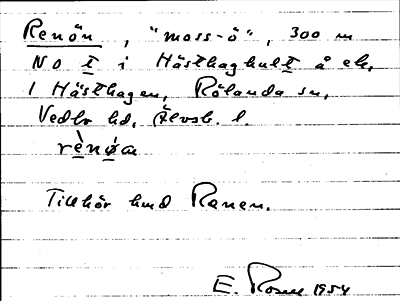 Renön, "moss-ö", 300 m
NO t i Hästhaghult å ek.
1 Hästhagen, Rölanda sn,
Vedbo hd, Älvsb. l.
rènø̀n
Tillhör hmd Ranen.
E. 1954